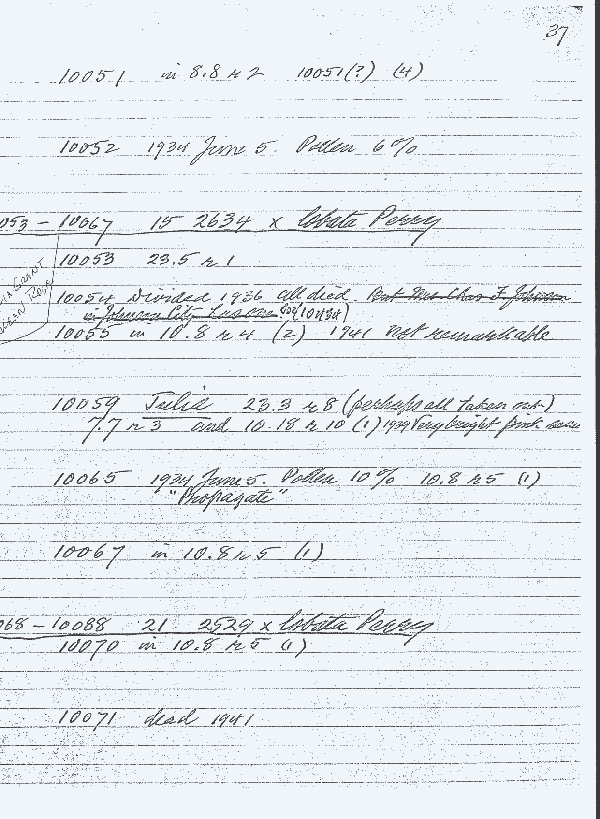 37
10051 in 8.8 r 2 10051(?) (4)
10052 1934 June 5. Pollen 6%
053 – 10067 15 2634 x lobata Perry
10053 23.5 r 1
10054 Divided 1936 all died. But Mrs Chas F. Johnson
in Johnson City has one (10454)
10055 in 10.8 r 4 (2) 1941 Not remarkable
10059 Julia 23.3 r 8 (perhaps all taken out)
7.7 r 3 and 10.18 r 10 (1) 1939 Very bright pink
10065 1934 June 5. Pollen 10% 10.8 r 5 (1)
"Propagate"
10067 in 10.8 r 5 (1)
068 – 10088 21 2529 x lobata Perry
10070 in 10.8 r 5 (1)
10071 dead 1941